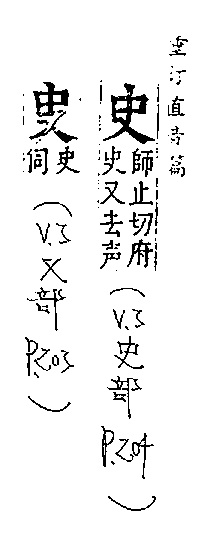 重订直音篇
史 師止切府史又去声 (V.3 史部 P.204)
史同 (V.3 又部 P.203)